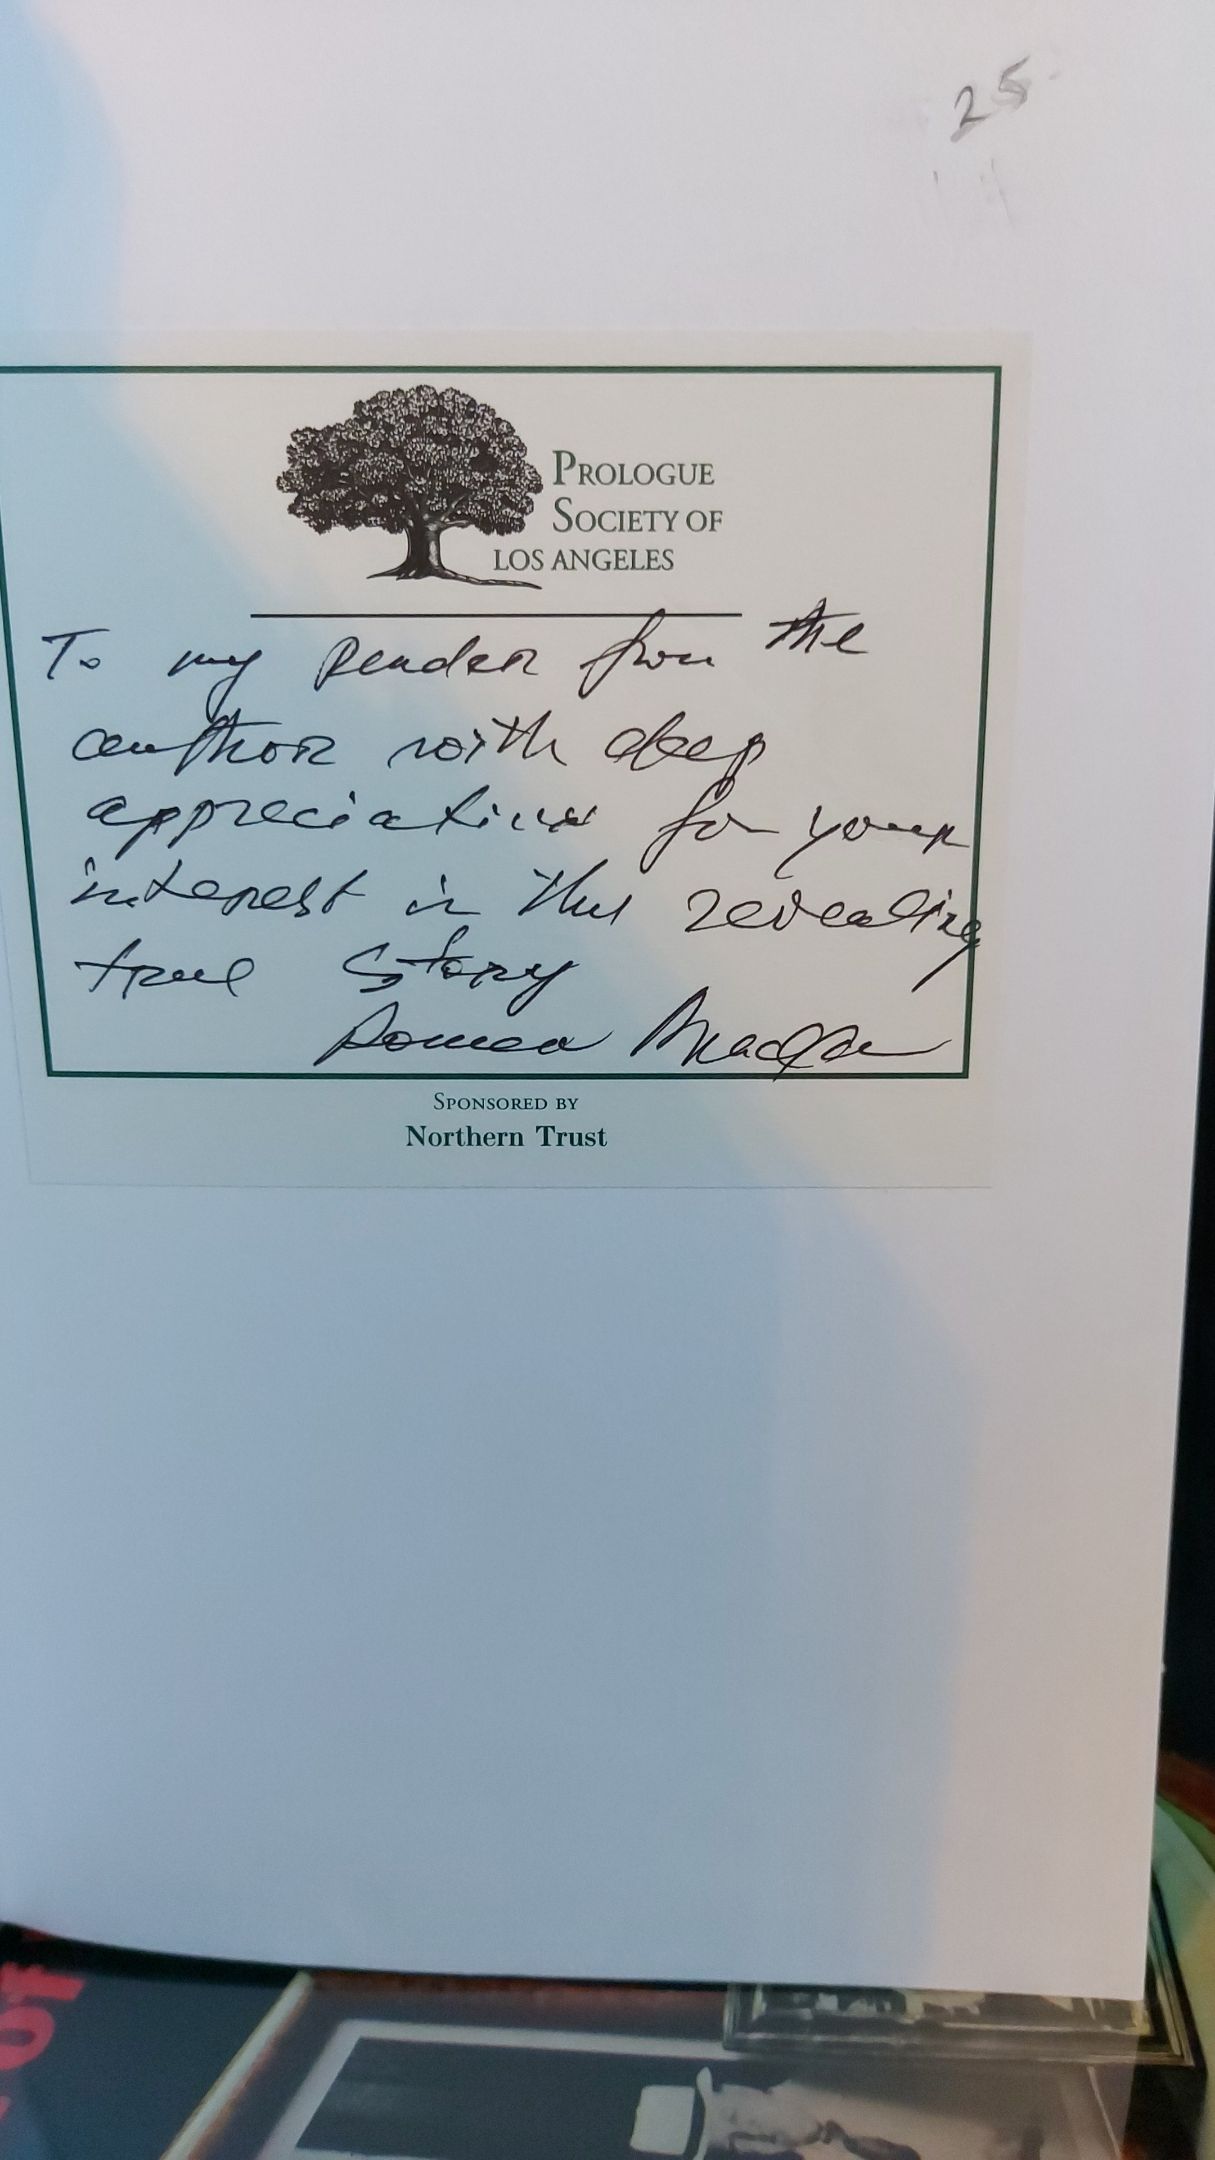 25
PROLOGUE
SOCIETY OF
LOS ANGELES
To my Reader from the
author with deep
appreciation for your
interest in this revealing
true story
SPONSORED BY
Northern Trust
OF